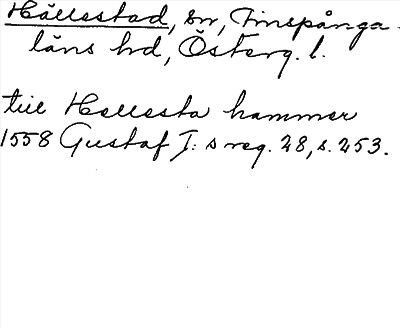 Hällestad, sn, Finspånga
läns hd, Österg. l.
till Hellesta hammer
1558 Gustaf I:s reg. 28, s. 253.